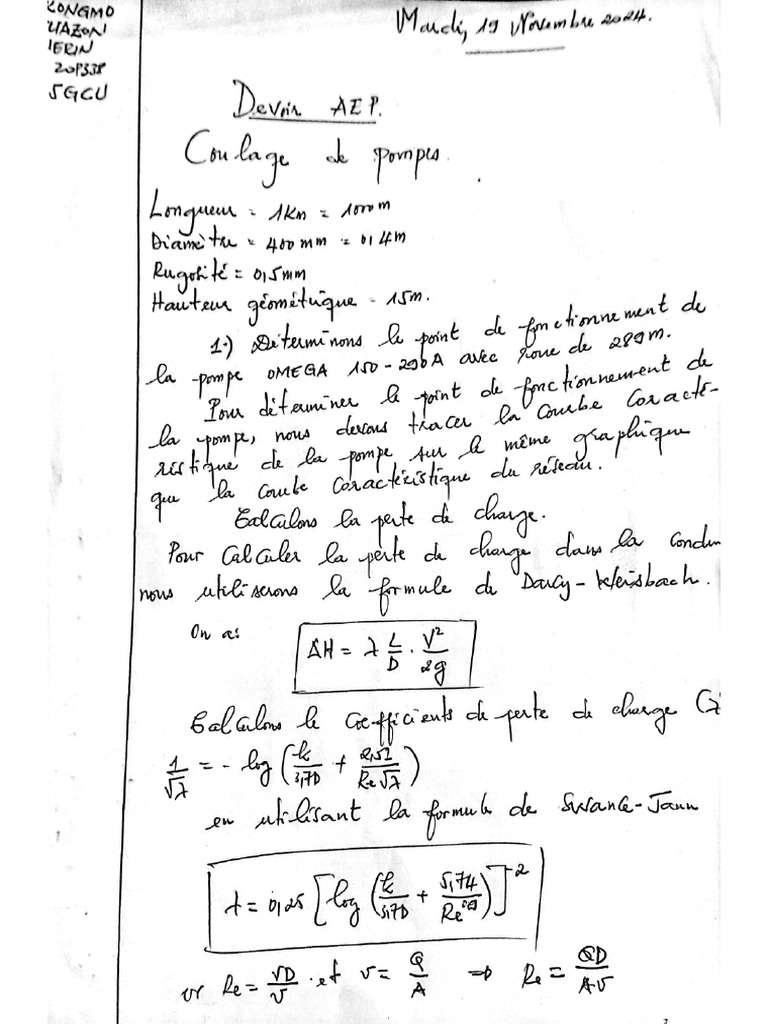 KONGMO
IERIN
20P338
5GCU
Mardi, 19 Novembre 2024.
Devoir AEP.
Coulage de pompes.
Longueur = 1Km = 1000m
Diamètre = 400mm = 0,4m
Rugosité = 0,5mm
Hauteur géométrique = 15m.
1-) Déterminons le point de fonctionnement de
la pompe OMEGA 150-290A avec roue de 289m.
Pour déterminer le point de fonctionnement de
la pompe, nous devons tracer la courbe caracté-
ristique de la pompe sur le même graphique
que la courbe caractéristique du réseau.
Calculons la perte de charge.
Pour calculer la perte de charge dans la condu
nous utiliserons la formule de Darcy-Weisbach.
On a: ΔH = λ L/D . V²/2g
Calculons le coefficients de perte de charge
1/√λ = - log (k/3,7D + 2,51/Re√λ)
en utilisant la formule de Swance-Jann
λ = 0,25 [log (k/3,7D + 5,74/Re^0,9)]^-2
or Re = VD/ν . et v = Q/A => Re = QD/Aν